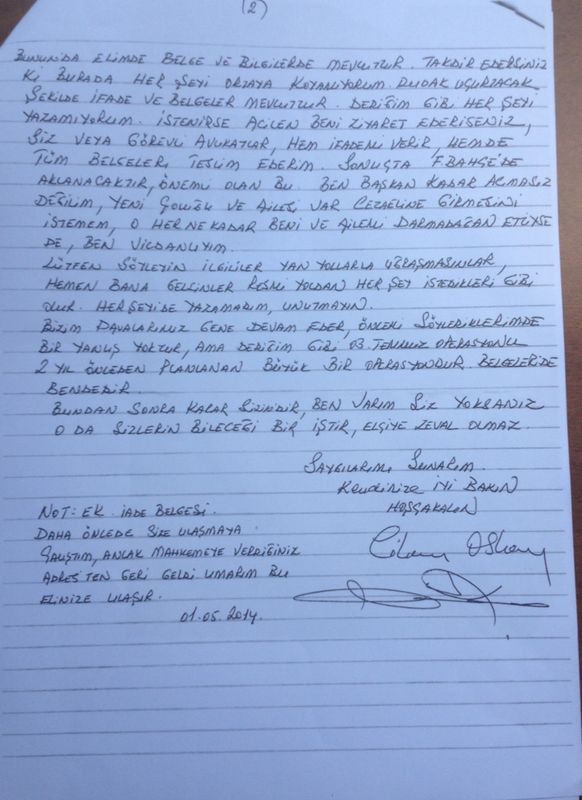 (2)
BUNUNDA ELİMDE BELGE VE BİLGİLERDE MEVCUTTUR. TAKDİR EDERSİNİZ
Kİ BURADA HER ŞEYİ ORTAYA KOYAMIYORUM. DUDAK UÇURTACAK
ŞEKİLDE İFADE VE BELGELER MEVCUTTUR. DEDİĞİM GİBİ HER ŞEYİ
YAZAMIYORUM. İSTENİRSE ACİLEN BENİ ZİYARET EDERİSENİZ,
SİZ VEYA GÖREVLİ AVUKATLAR, HEM İFADEMİ VERİR, HEMDE
TÜM BELGELERİ TESLİM EDERİM. SONUÇTA F.BAHÇE'DE
AKLANACAKTIR, ÖNEMLİ OLAN BU. BEN BAŞKAN KADAR ACIMASIZ
DEĞİLİM, YENİ ÇOCUĞU VE AİLESİ VAR CEZAEVİNE GİRMESİNİ
İSTEMEM, O HER NE KADAR BENİ VE AİLEMİ DARMADAĞAN ETTİYSE
DE, BEN VİCDANLIYIM.
LÜTFEN SÖYLEYİN İLGİLİLER YAN YOLLARLA UĞRAŞMASINLAR,
HEMEN BANA GELSİNLER RESMİ YOLDAN HER ŞEY İSTEDİKLERİ GİBİ
OLUR. HERŞEYİDE YAZAMADIM, UNUTMAYIN.
BİZİM DAVALARIMIZ GENE DEVAM EDER, ÖNCEKİ SÖYLEDİKLERİMDE
BİR YANLIŞ YOKTUR, AMA DEDİĞİM GİBİ 03 TEMMUZ OPERASYONU
2 YIL ÖNCEDEN PLANLANAN BÜYÜK BİR OPERASYONDUR. BELGELERİDE
BENDEDİR.
BUNDAN SONRA KARAR SİZİNDİR, BEN VARIM SİZ YOKSANIZ
O DA SİZLERİN BİLECEĞİ BİR İŞTİR, ELÇİYE ZEVAL OLMAZ.
SAYGILARIMI SUNARIM.
KENDİNİZE İYİ BAKIN
HOŞÇAKALIN
NOT: EK. İADE BELGESİ.
DAHA ÖNCEDE SİZE ULAŞMAYA
ÇALIŞTIM, ANCAK MAHKEMEYE VERDİĞİNİZ
ADRES'TEN GERİ GELDİ UMARIM BU
ELİNİZE ULAŞIR.
01.05.2014.